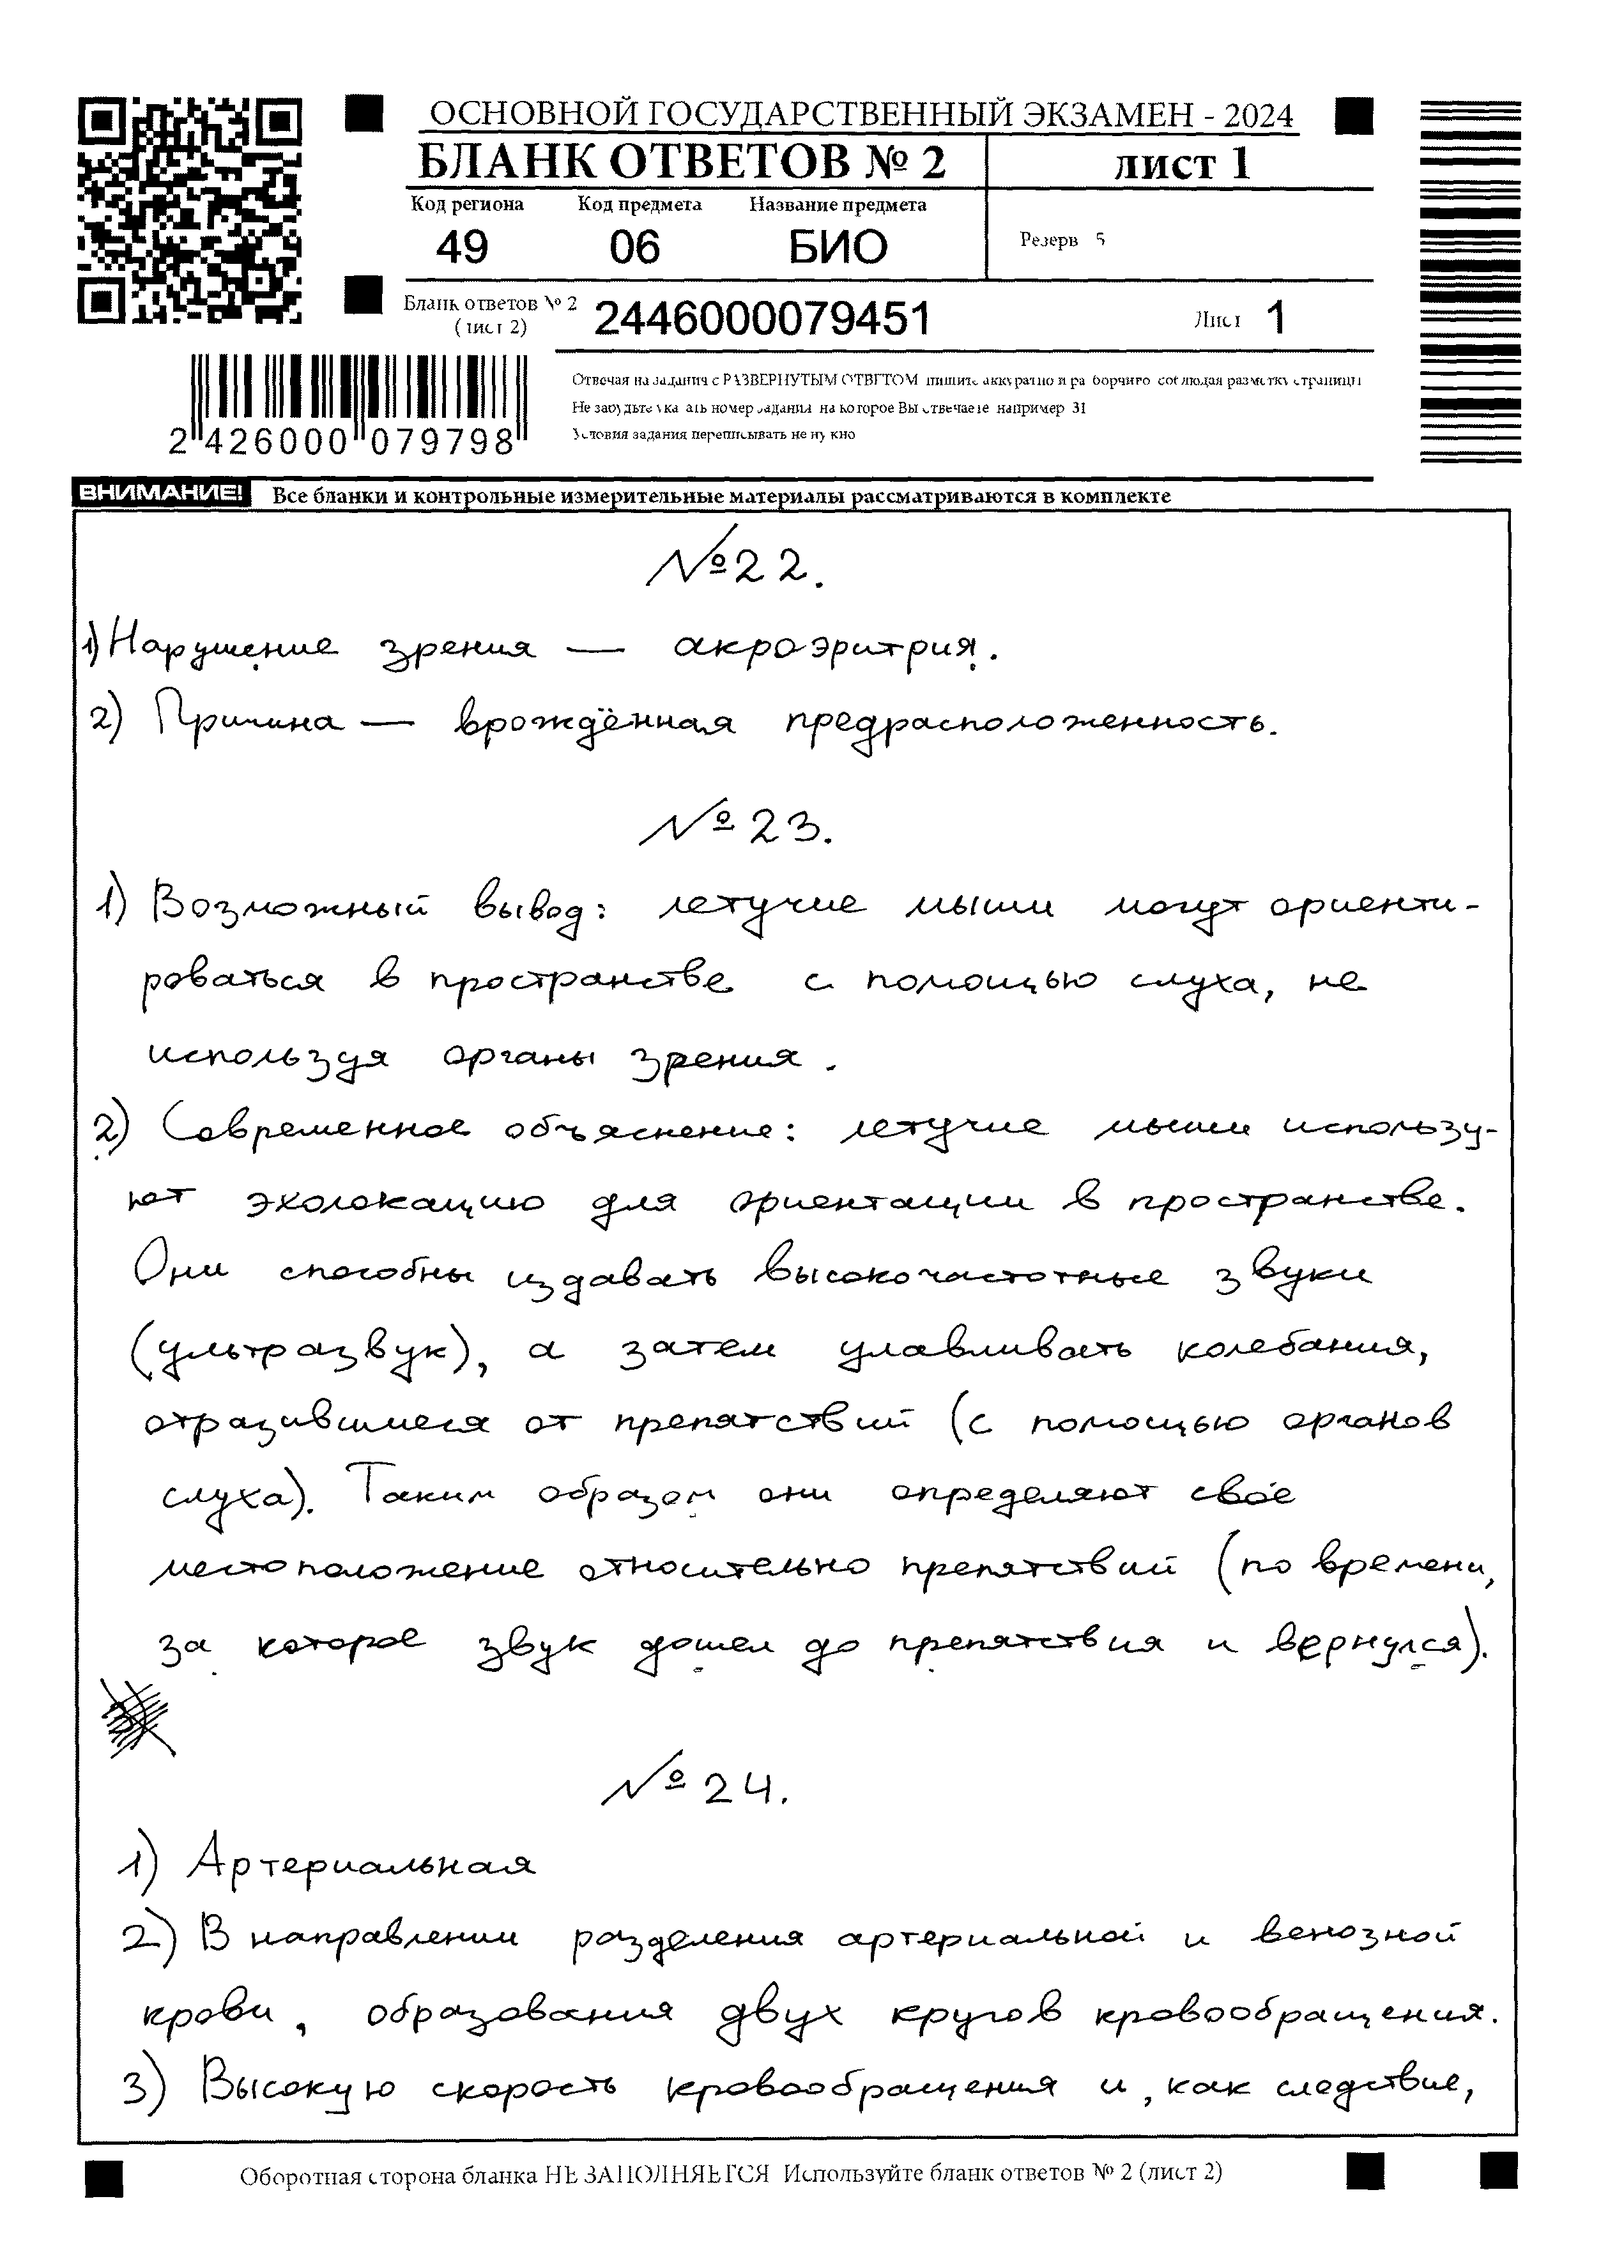 ОСНОВНОЙ ГОСУДАРСТВЕННЫЙ ЭКЗАМЕН - 2024
БЛАНК ОТВЕТОВ № 2
лист 1
Код региона Код предмета Название предмета
49 06 БИО
Резерв 5
Бланк ответов № 2
(лист 2)
2446000079451
Лист 1
2 426000 079798
Отвечая на задания с РАЗВЕРНУТЫМ ОТВЕТОМ пишите аккуратно и разборчиво соблюдая разметку страницы
Не забудьте указать номер задания на которое Вы отвечаете например 31
Условия задания переписывать не нужно
ВНИМАНИЕ! Все бланки и контрольные измерительные материалы рассматриваются в комплекте
№22.
1) Нарушение зрения — акроэритрия.
2) Причина — врождённая предрасположенность.
№23.
1) Возможный вывод: летучие мыши могут ориенти-
роваться в пространстве с помощью слуха, не
используя органы зрения.
2) Современное объяснение: летучие мыши использу-
ют эхолокацию для ориентации в пространстве.
Они способны издавать высокочастотные звуки
(ультразвук), а затем улавливать колебания,
отразившиеся от препятствий (с помощью органов
слуха). Таким образом они определяют своё
местоположение относительно препятствий (по времени,
за которое звук дошел до препятствия и вернулся).
№24.
1) Артериальная
2) В направлении разделения артериальной и венозной
крови, образования двух кругов кровообращения.
3) Высокую скорость кровообращения и, как следствие,
Оборотная сторона бланка НЕ ЗАПОЛНЯЕТСЯ Используйте бланк ответов № 2 (лист 2)